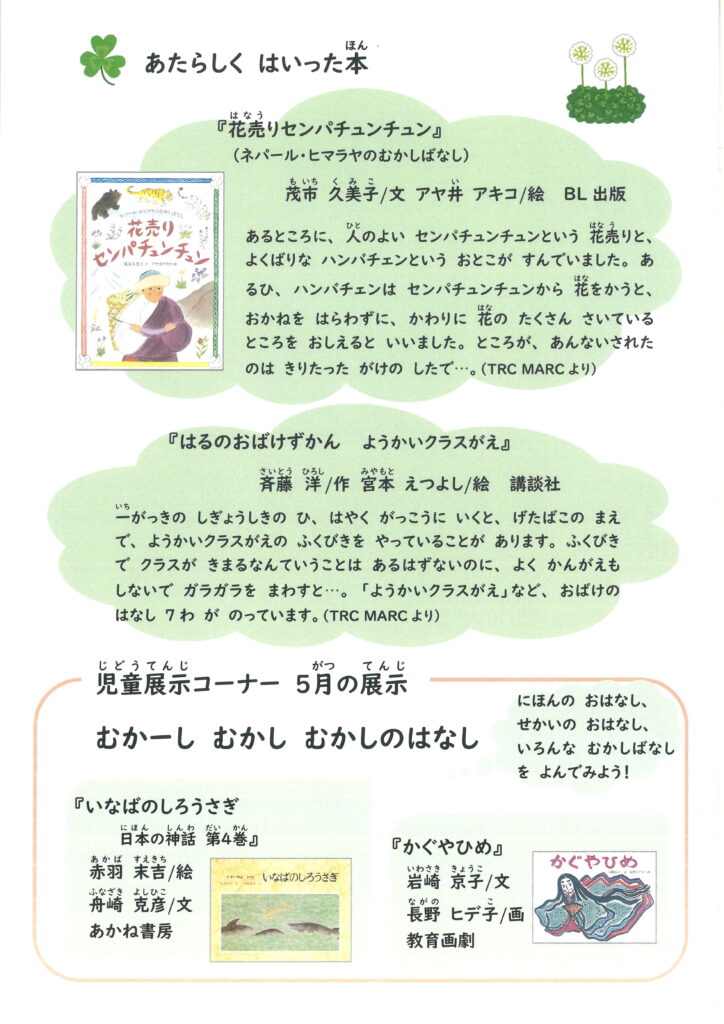 あたらしく はいった本
ほん
『花売りセンパチュンチュン』
はなう
（ネパール・ヒマラヤのむかしばなし）
茂市 久美子/文 アヤ井 アキコ/絵 BL出版
もいち くみこ い
花売り
センパチュンチュン
あるところに、人のよい センパチュンチュンという 花売りと、
ひと はなう
よくばりな ハンパチェンという おとこが すんでいました。あ
るひ、ハンパチェンは センパチュンチュンから 花をかうと、
はな
おかねを はらわずに、かわりに 花の たくさん さいている
はな
ところを おしえると いいました。ところが、あんないされた
のは きりたった がけの したで…。（TRC MARCより）
『はるのおばけずかん ようかいクラスがえ』
斉藤 洋/作 宮本 えつよし/絵 講談社
さいとう ひろし みやもと
一がっきの しぎょうしきの ひ、はやく がっこうに いくと、げたばこの まえ
いち
で、ようかいクラスがえの ふくびきを やっていることが あります。ふくびき
で クラスが きまるなんていうことは あるはずないのに、よく かんがえも
しないで ガラガラを まわすと…。「ようかいクラスがえ」など、おばけの
はなし 7わ が のっています。（TRC MARCより）
児童展示コーナー 5月の展示
じどうてんじ がつ てんじ
むかーし むかし むかしのはなし
にほんの おはなし、
せかいの おはなし、
いろんな むかしばなし
を よんでみよう！
『いなばのしろうさぎ
日本の神話 第4巻』
にほん しんわ だい かん
赤羽 末吉/絵
あかば すえきち
舟崎 克彦/文
ふなざき よしひこ
あかね書房
いなばのしろうさぎ
『かぐやひめ』
岩崎 京子/文
いわさき きょうこ
長野 ヒデ子/画
ながの こ
教育画劇
かぐやひめ